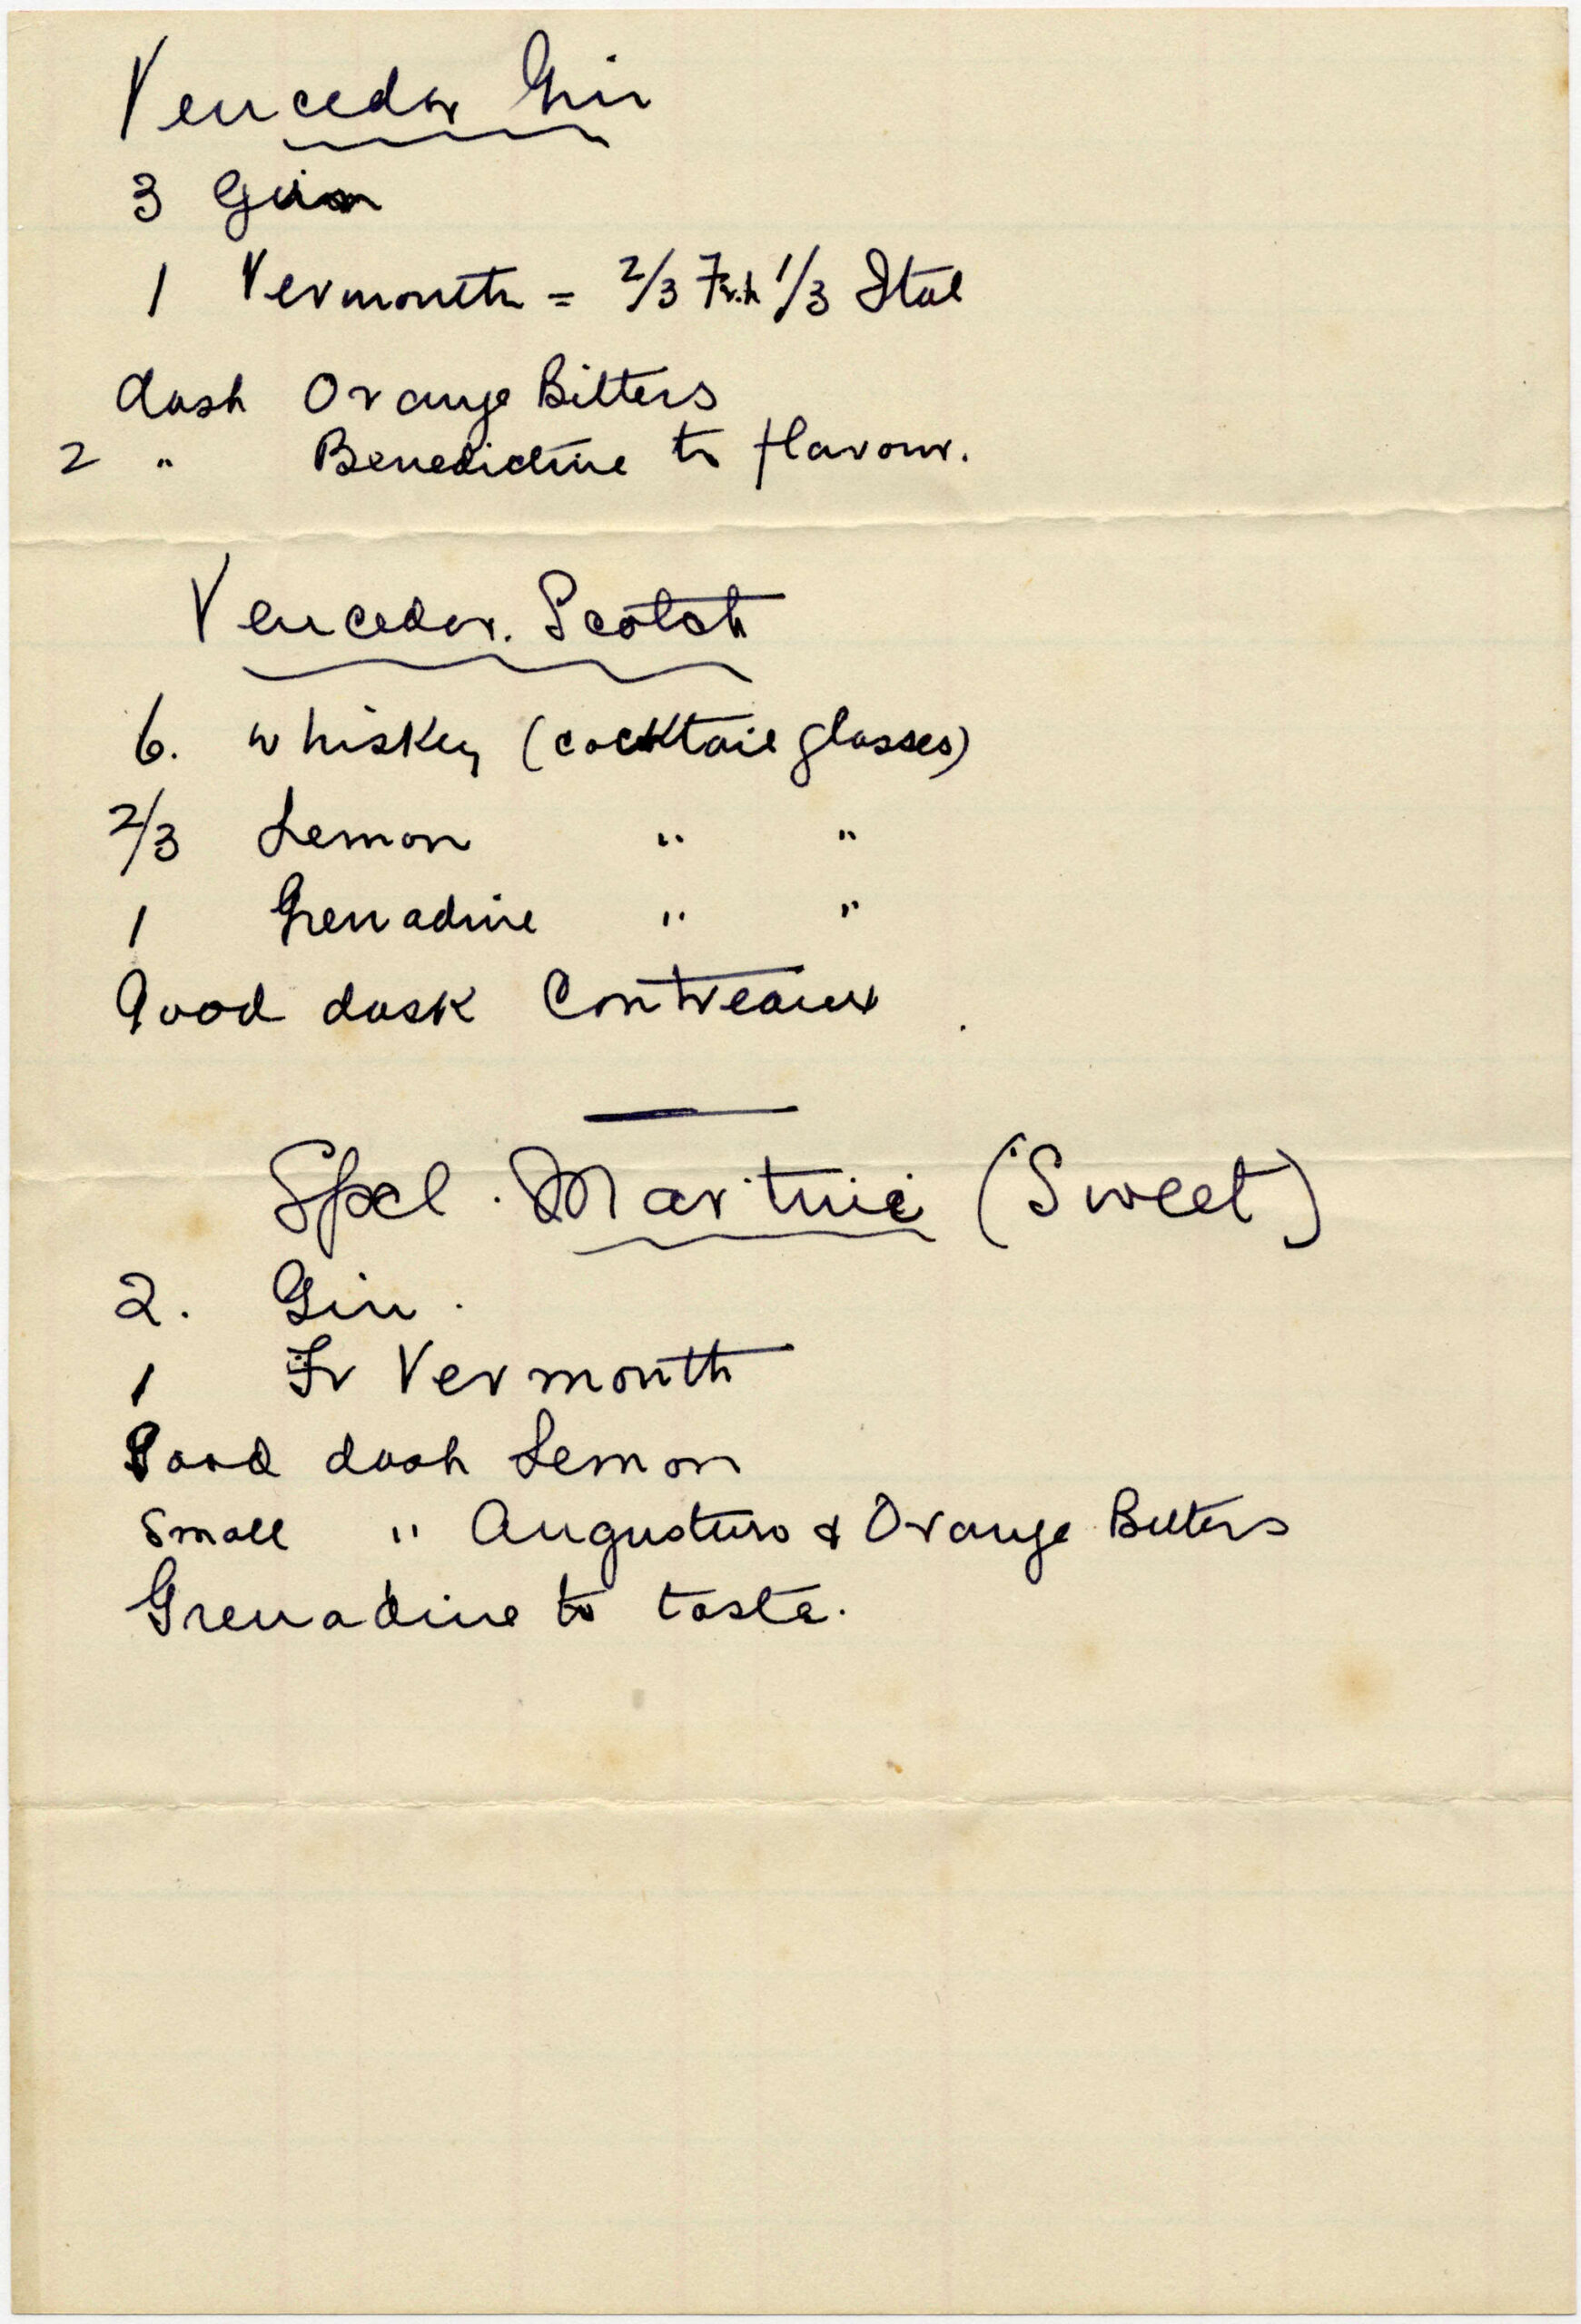 Vencedor Gin
3 Gin
1 Vermouth = 2/3 Frh 1/3 Ital
dash Orange Bitters
2 " Benedictine to flavour.
Vencedor. Scotch
6. whiskey (cocktail glasses)
2/3 Lemon " "
1 Grenadine " "
Good dash Contreaux
Spcl. Martini (Sweet)
2. Gin.
1 Fr Vermouth
Good dash Lemon
Small " Angusturo & Orange Bitters
Grenadine to taste.